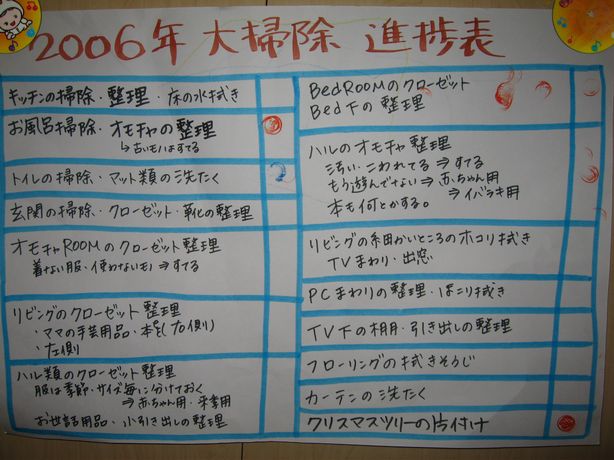 2006年 大掃除 進捗表
キッチンの掃除・整理・床の水拭き
お風呂掃除・オモチャの整理
↳古いモノはすてる
トイレの掃除・マット類の洗たく
玄関の掃除・クローゼット・靴の整理
オモチャROOMのクローゼット整理
着ない服・使わないモノ⇒すてる
リビングのクローゼット整理
・ママの手芸用品・本など(右側)
・左側
ハル類のクローゼット整理
服は季節・サイズ毎に分けておく
⇒赤ちゃん用・来季用
お世話用品・小引き出しの整理
BedROOMのクローゼット
Bed下の整理
ハルのオモチャ整理
汚い・こわれてる⇒すてる
もう遊んでない⇒赤ちゃん用
⇒イバラキ用
本も何とかする。
リビングの細かいところのホコリ拭き
TVまわり・出窓
PCまわりの整理・ほこり拭き
TV下の棚・引き出しの整理
フローリングの拭きそうじ
カーテンの洗たく
クリスマスツリーの片付け